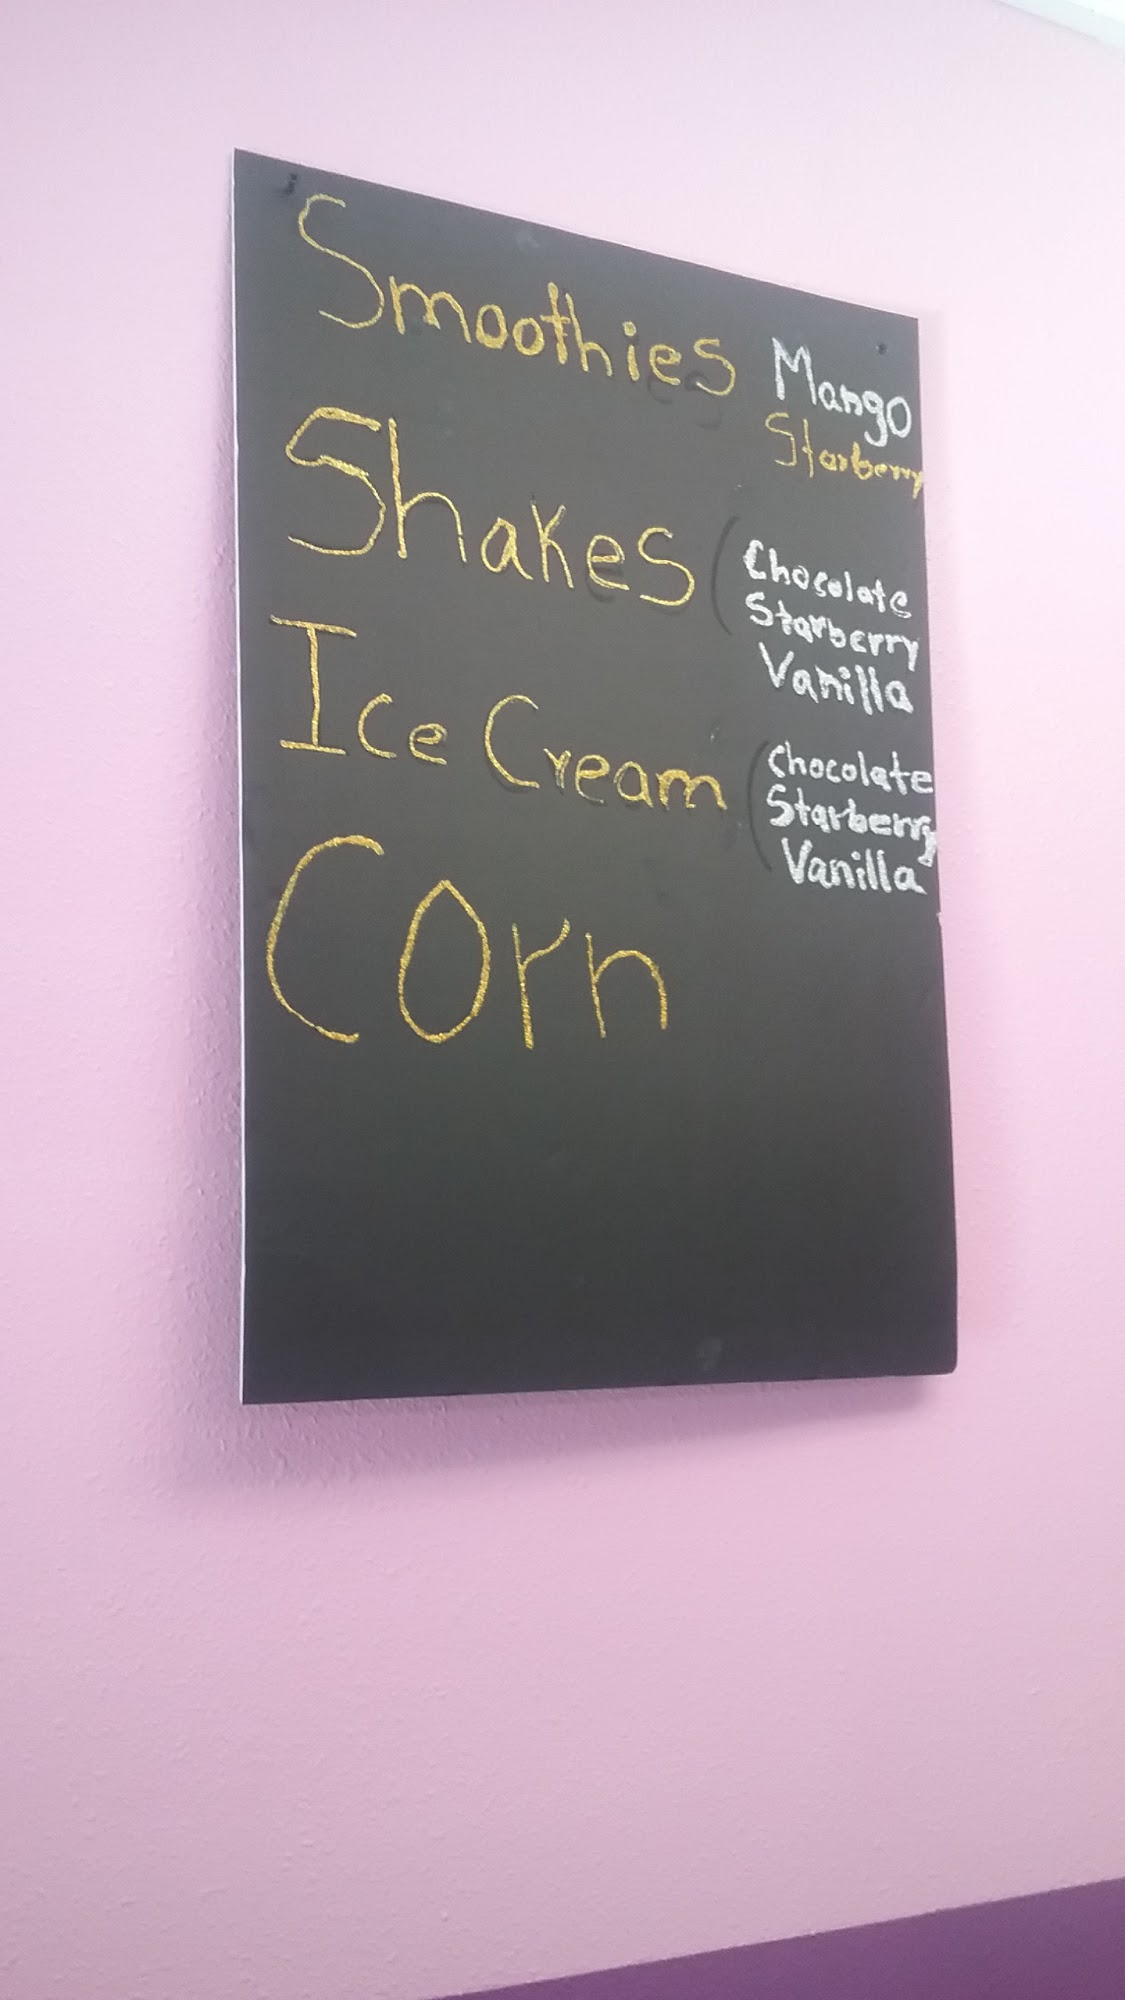 Smoothies Mango
Starberry
Shakes
Chocolate
Starberry
Vanilla
Ice Cream
Chocolate
Starberry
Vanilla
Corn